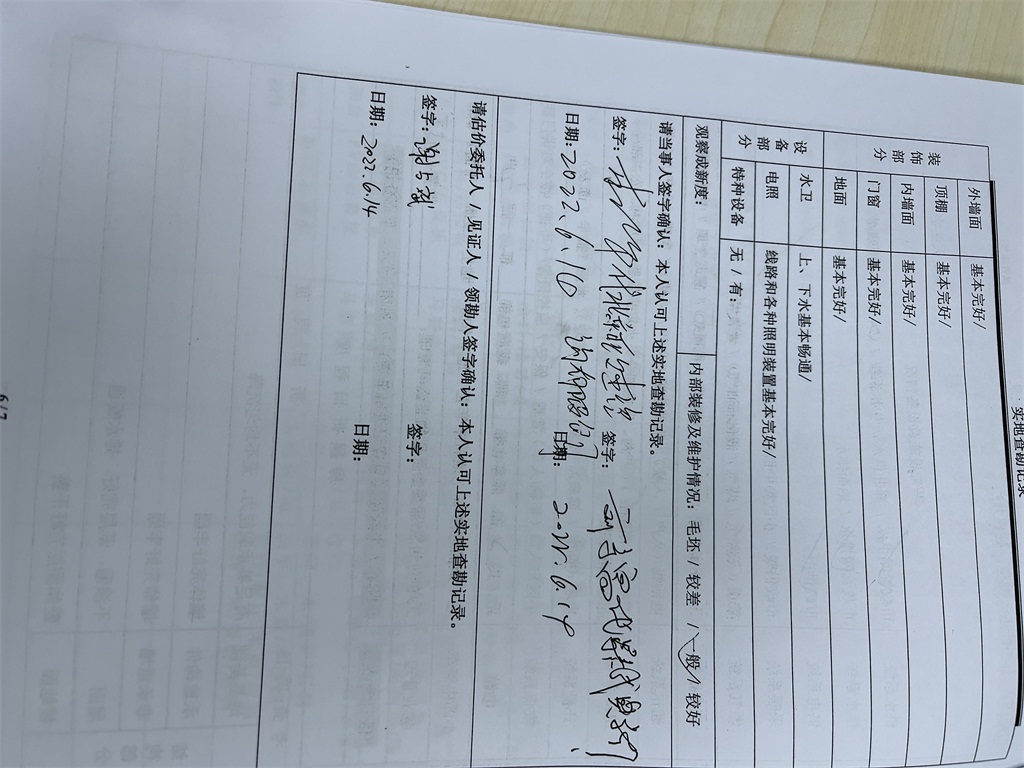 实地查勘记录
装饰部分
外墙面 基本完好/
顶棚 基本完好/
内墙面 基本完好/
门窗 基本完好/
地面 基本完好/
设备部分
水卫 上、下水基本畅通/
电照 线路和各种照明装置基本完好/
特种设备 无 / 有:
观察成新度: 内部装修及维护情况: 毛坯 / 较差 / 一般 / 较好
请当事人签字确认: 本人认可上述实地查勘记录。
签字: 签字:
日期: 2022.6.16 日期: 2022.6.14
请估价委托人 / 见证人 / 领勘人签字确认: 本人认可上述实地查勘记录。
签字: 签字:
日期: 2022.6.14 日期:
6/7